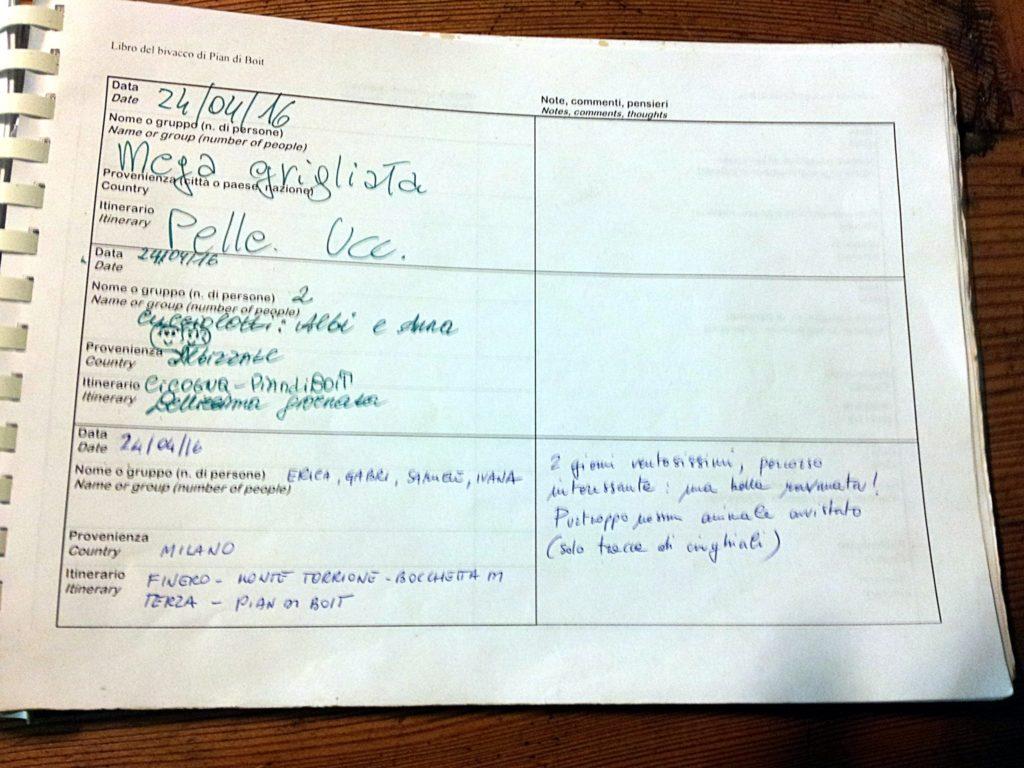 Libro del bivacco di Pian di Boit
Data
Date 24/04/16
Nome o gruppo (n. di persone)
Name or group (number of people)
Mega grigliata
Provenienza (città o paese, nazione)
Country
Itinerario
Itinerary
Pelle. Ucc.
Note, commenti, pensieri
Notes, comments, thoughts
Data 24/04/16
Date
Nome o gruppo (n. di persone) 2
Name or group (number of people)
Cucciolotti: Albi e Anna
Provenienza
Country Albizzate
Itinerario CICOGNA - PIAN di BOIT
Itinerary Bellissima giornata
Data
Date 24/04/16
Nome o gruppo (n. di persone) ERICA, GABRI, SAMUELE, IVANA
Name or group (number of people)
Provenienza
Country MILANO
Itinerario FINERO - MONTE TORRIONE - BOCCHETTA DI
Itinerary TERZA - PIAN DI BOIT
2 giorni ventosissimi, percorso
interessante: una bella ravanata!
Purtroppo nessun animale avvistato
(solo tracce di cinghiali)